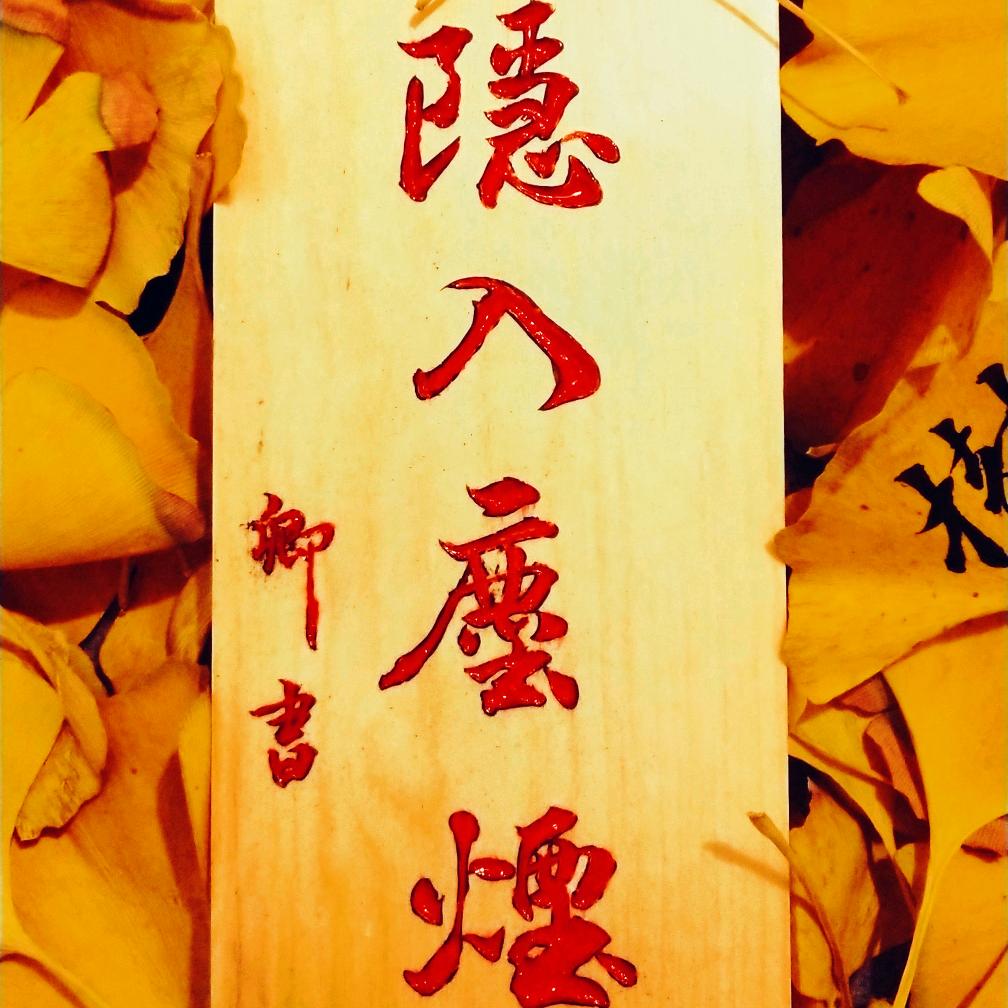 隱入塵煙
卿書